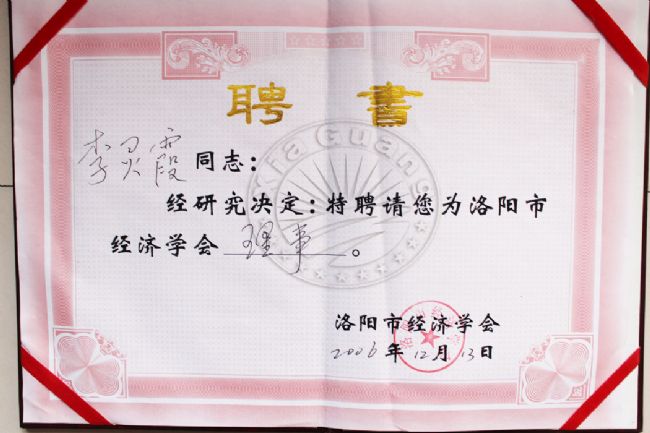 聘 书
李灵霞同志：
经研究决定：特聘请您为洛阳市
经济学会 理事 。
Xia Guang
洛阳市经济学会
2006年12月13日